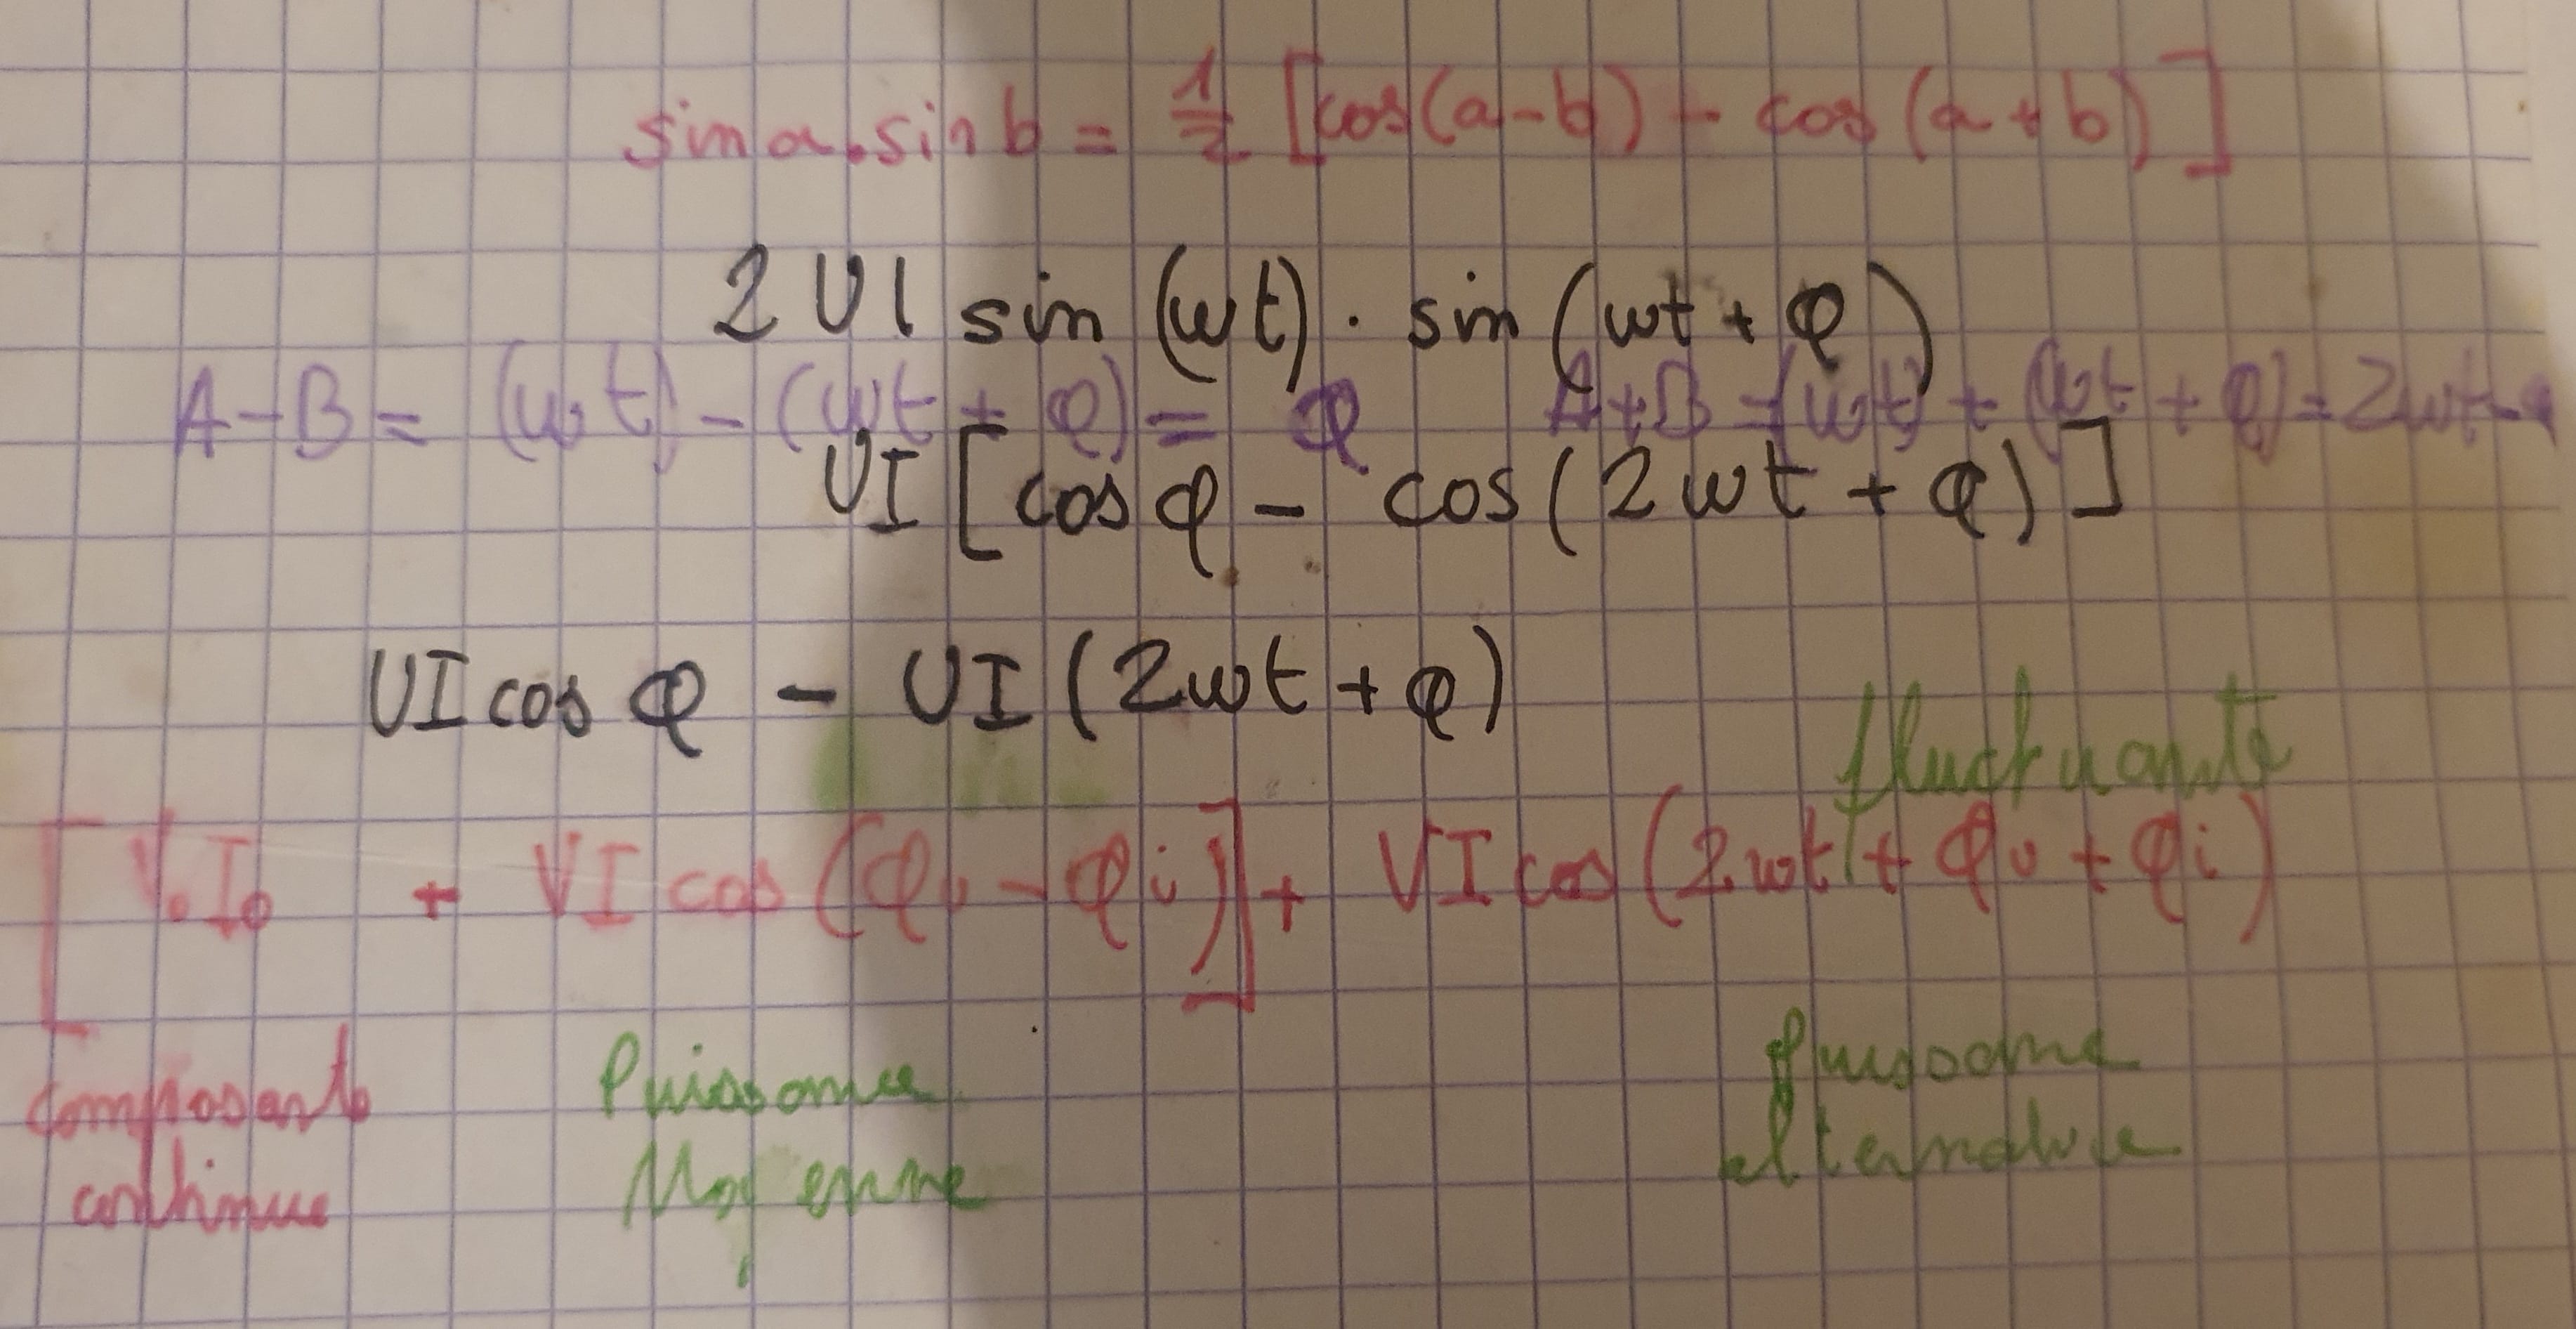 sin a.sin b = 1/2 [cos(a-b) - cos(a+b)]
2UI sin(wt) · sin(wt + φ)
A-B = (wt) - (wt + φ) = φ A+B = (wt) + (wt + φ) = 2wt-φ
UI[cos φ - cos(2wt + φ)]
UI cos φ - UI(2wt + φ)
fluctuante
[V₀I₀ + VI cos(φv - φi)] + VI cos(2wt + φv + φi)
Composante Puissance puissance
continue Moyenne alternative